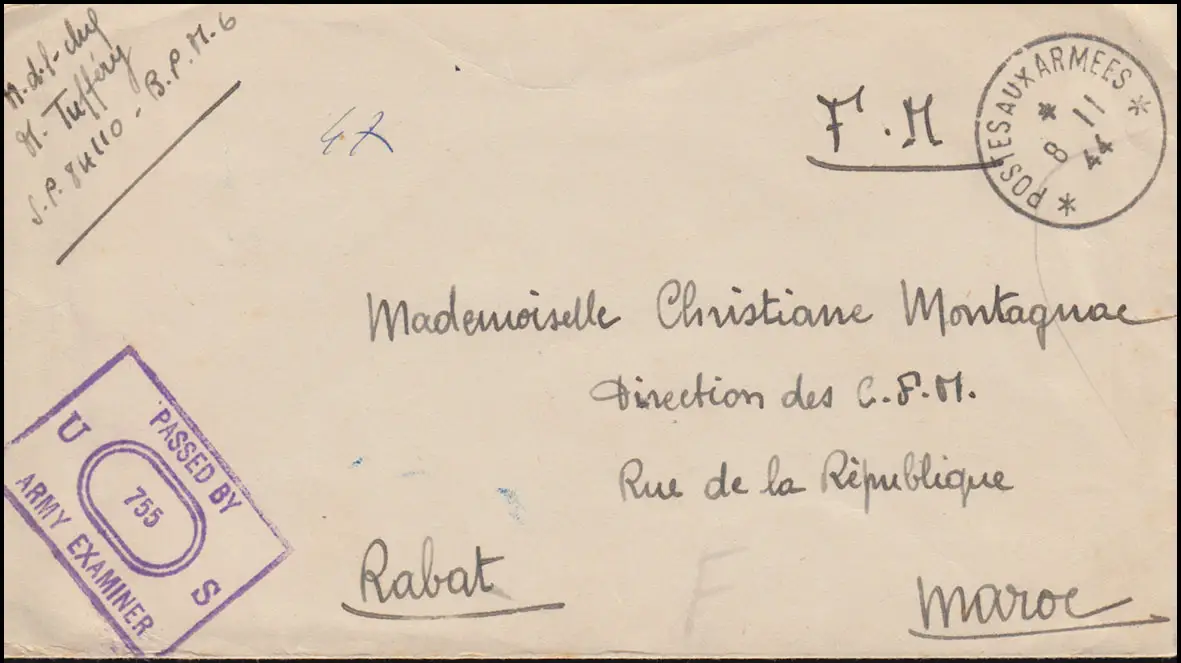 M.d.l-chef
M. Tufféry
S.P. 74110 - B.P.M-6
47
F.M
POSTES AUX ARMEES
8 * 11
44
Mademoiselle Christiane Montagnac
Direction des C.F.M.
Rue de la République
Rabat
F
Maroc
PASSED BY
U 755 S
ARMY EXAMINER